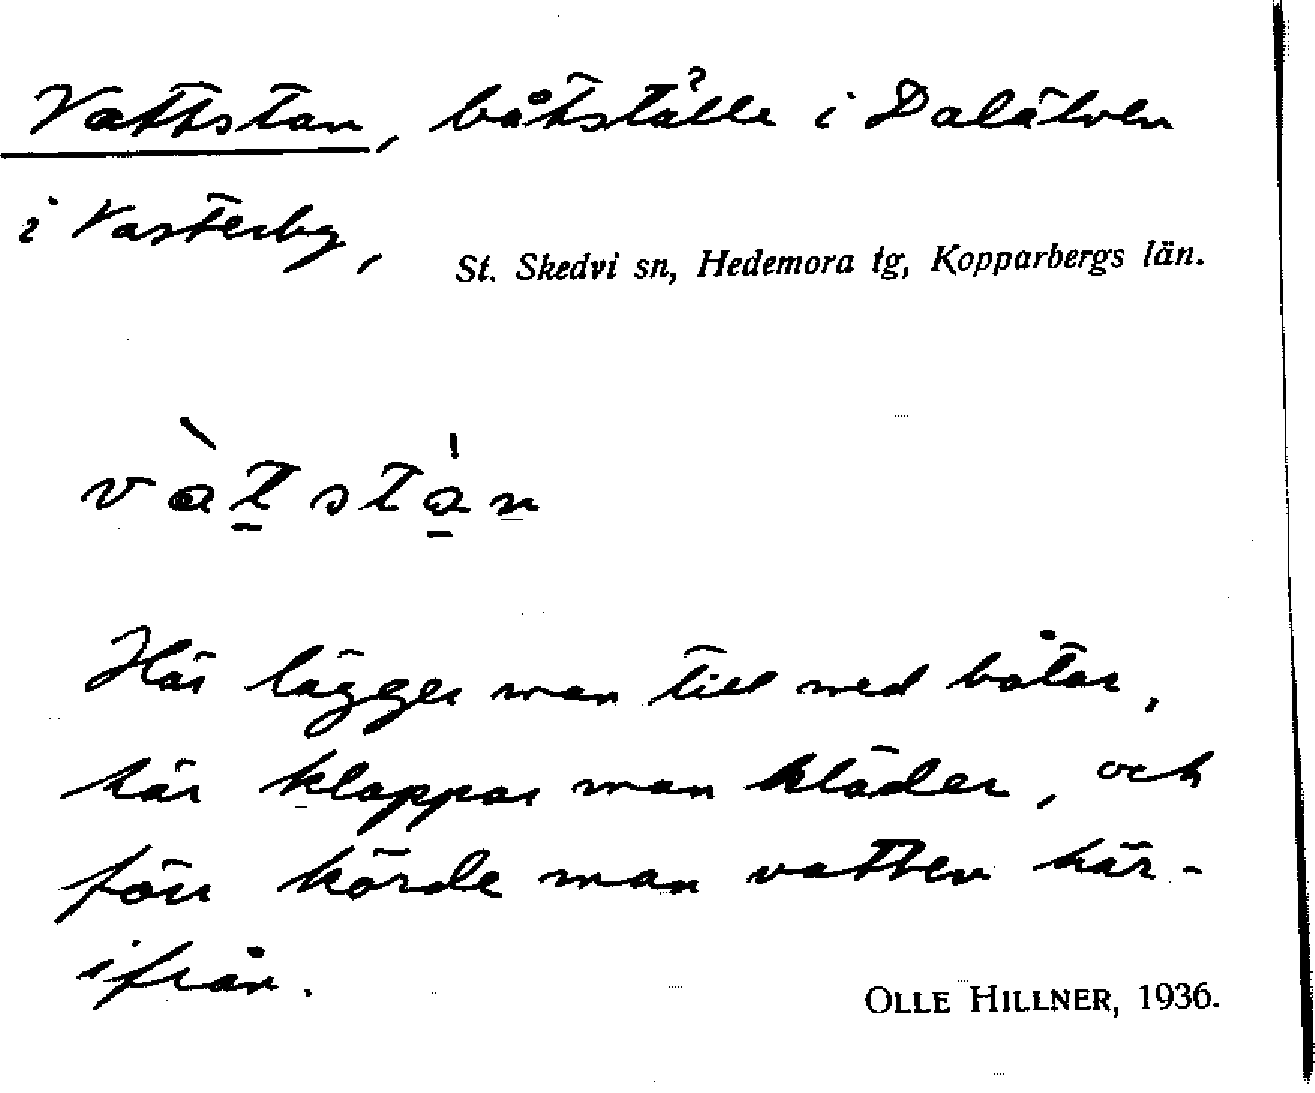 Vattstan, båtställe i Dalälven
i Västerby,
St. Skedvi sn, Hedemora tg, Kopparbergs län.
vàtstàn
Här lägger man till med båtar,
här klappar man kläder, och
förr körde man vatten här-
ifrån.
OLLE HILLNER, 1936.